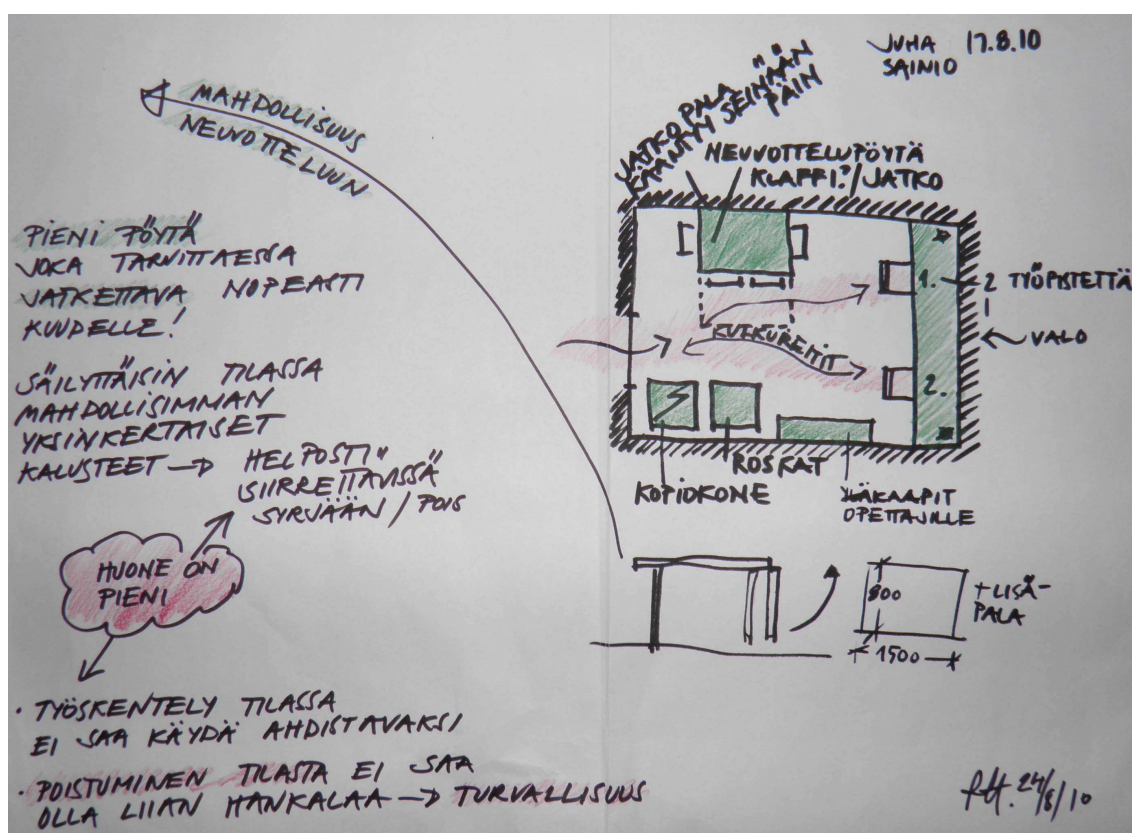 MAHDOLLISUUS
NEUVOTTELUUN
PIENI PÖYTÄ
JOKA TARVITTAESSA
JATKETTAVA NOPEASTI
KUUDELLE!
SÄILYTTÄISIN TILASSA
MAHDOLLISIMMAN
YKSINKERTAISET
KALUSTEET → HELPOSTI
SIIRRETTÄVISSÄ
SYRJÄÄN / POIS
HUONE ON
PIENI
· TYÖSKENTELY TILASSA
EI SAA KÄYDÄ AHDISTAVAKSI
· POISTUMINEN TILASTA EI SAA
OLLA LIIAN HANKALAA → TURVALLISUUS
JUHA 17.8.10
SAINIO
JATKOPALA
KÄÄNTYY SEINÄÄN
PÄIN
NEUVOTTELUPÖYTÄ
KLAFFI?/JATKO
1.
2 TYÖPISTETTÄ
VALO
KULKUREITIT
2.
ROSKAT
KOPIOKONE
YLÄKAAPIT
OPETTAJILLE
800
1500
+ LISÄ-
PALA
24/8/10